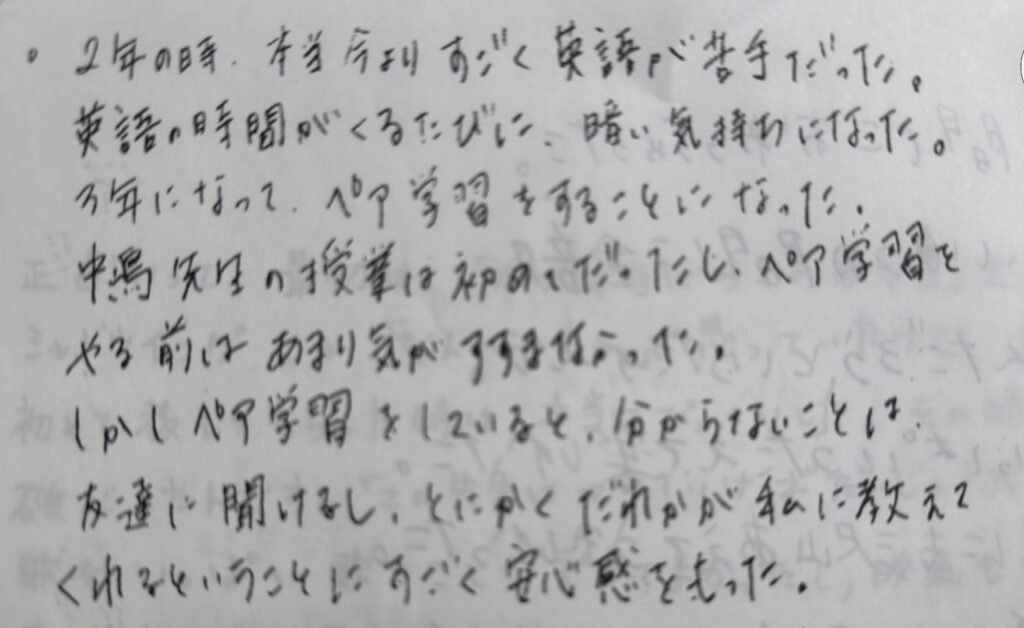 。2年の時、本当今よりすごく英語が苦手だった。
英語の時間がくるたびに、暗い気持ちになった。
3年になって、ペア学習をすることになった。
中嶋先生の授業は初めてだったし、ペア学習を
やる前はあまり気がすすまなかった。
しかしペア学習をしていると、分からないことは、
友達に聞けるし、とにかくだれかが私に教えて
くれるということにすごく安心感をもった。